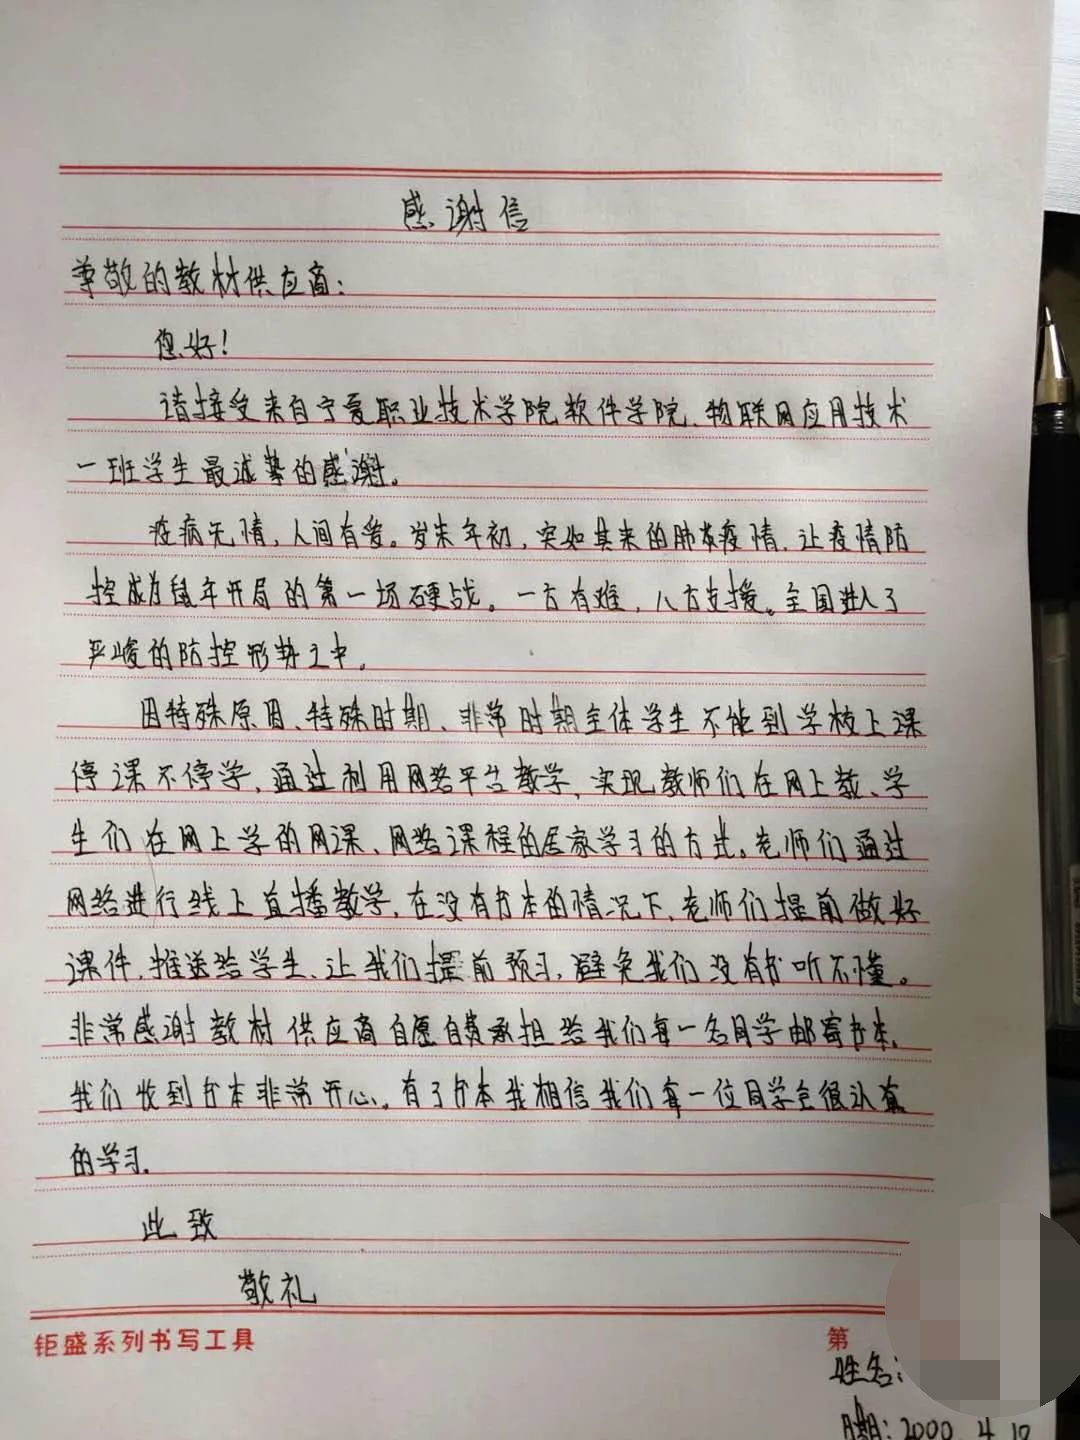 感谢信
尊敬的教材供应商：
您好！
请接受来自宁夏职业技术学院软件学院、物联网应用技术
一班学生最诚挚的感谢。
疫病无情，人间有爱。岁末年初，突如其来的肺炎疫情，让疫情防
控成为鼠年开局的第一场硬战。一方有难，八方支援。全国进入了
严峻的防控形势之中。
因特殊原因、特殊时期、非常时期全体学生不能到学校上课
停课不停学，通过利用网络平台教学，实现教师们在网上教、学
生们在网上学的网课、网络课程的居家学习的方式。老师们通过
网络进行线上直播教学，在没有书本的情况下，老师们提前做好
课件，推送给学生、让我们提前预习，避免我们没有书听不懂。
非常感谢教材供应商自愿自费承担给我们每一名同学邮寄书本，
我们收到书本非常开心。有了书本我相信我们每一位同学会很认真
的学习。
此致
敬礼
钜盛系列书写工具
第
姓名：
日期：2000.4.10